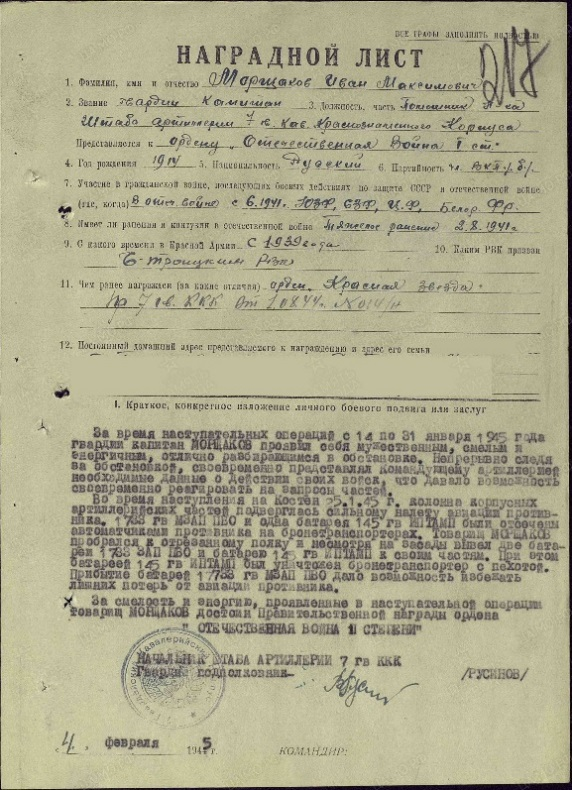 ВСЕ ГРАФЫ ЗАПОЛНЯТЬ ПОЛНОСТЬЮ
217
НАГРАДНОЙ ЛИСТ
1. Фамилия, имя и отчество Морщаков Иван Максимович
2. Звание гвардии Капитан 3. Должность, часть Помощник
Штаба артиллерии 7 гв. Кав. Краснознаменного Корпуса
Представляется к ордену „Отечественная Война II ст."
4. Год рождения 1914 5. Национальность Русский 6. Партийность чл. ВКП(б)
7. Участие в гражданской войне, последующих боевых действиях по защите СССР и отечественной войне
(где, когда) В отеч. войне с 6.1941. ЮЗФ, СЗФ, Ц.Ф, Белор. Фр.
8. Имеет ли ранения и контузии в отечественной войне Тяжелое ранение 2.8.1941г
9. С какого времени в Красной Армии С 1939 года 10. Каким РВК призван
Б-Троицким РВК
11. Чем ранее награжден (за какие отличия) орден Красная звезда.
Пр 7 гв. ККК от
12. Постоянный домашний адрес представляемого к награждению и адрес его семьи
I. Краткое, конкретное изложение личного боевого подвига или заслуг
За время наступательных операций с 14 по 31 января 1945 года
гвардии капитан МОРЩАКОВ проявил себя мужественным, смелым и
энергичным, отлично разбирающимся в обстановке. Непрерывно следя
за обстановкой, своевременно представлял Командующему артиллерией
необходимые данные о Действии своих войск, что давало возможность
своевременно реагировать на запросы частей.
Во время наступления на Костен 25.1.45 г. колонна корпусных
артиллерийских частей подверглась сильному налету авиации против-
ника. 1733 гв МЗАП ПВО и одна батарея 145 гв ИПТАМП были отсечены
автоматчиками противника на бронетранспортерах. Товарищ МОРЩАКОВ
пробрался к отрезанному полку и несмотря на засады вывел две бата-
реи 1733 ЗАП ПВО и батарею 145 гв ИПТАМП к своим частям. При этом
батареей 145 гв ИПТАМП был уничтожен бронетранспортер с пехотой.
Прибытие батарей 1733 гв МЗАП ПВО дало возможность избежать
лишних потерь от авиации противника.
За смелость и энергию, проявленные в наступательной операции
товарищ МОРЩАКОВ достоин Правительственной награды ордена
" ОТЕЧЕСТВЕННАЯ ВОЙНА II СТЕПЕНИ"
НАЧАЛЬНИК ШТАБА АРТИЛЛЕРИИ 7 гв ККК
Гвардии подполковник- /РУСИНОВ/
4. февраля 1945
КОМАНДИР: